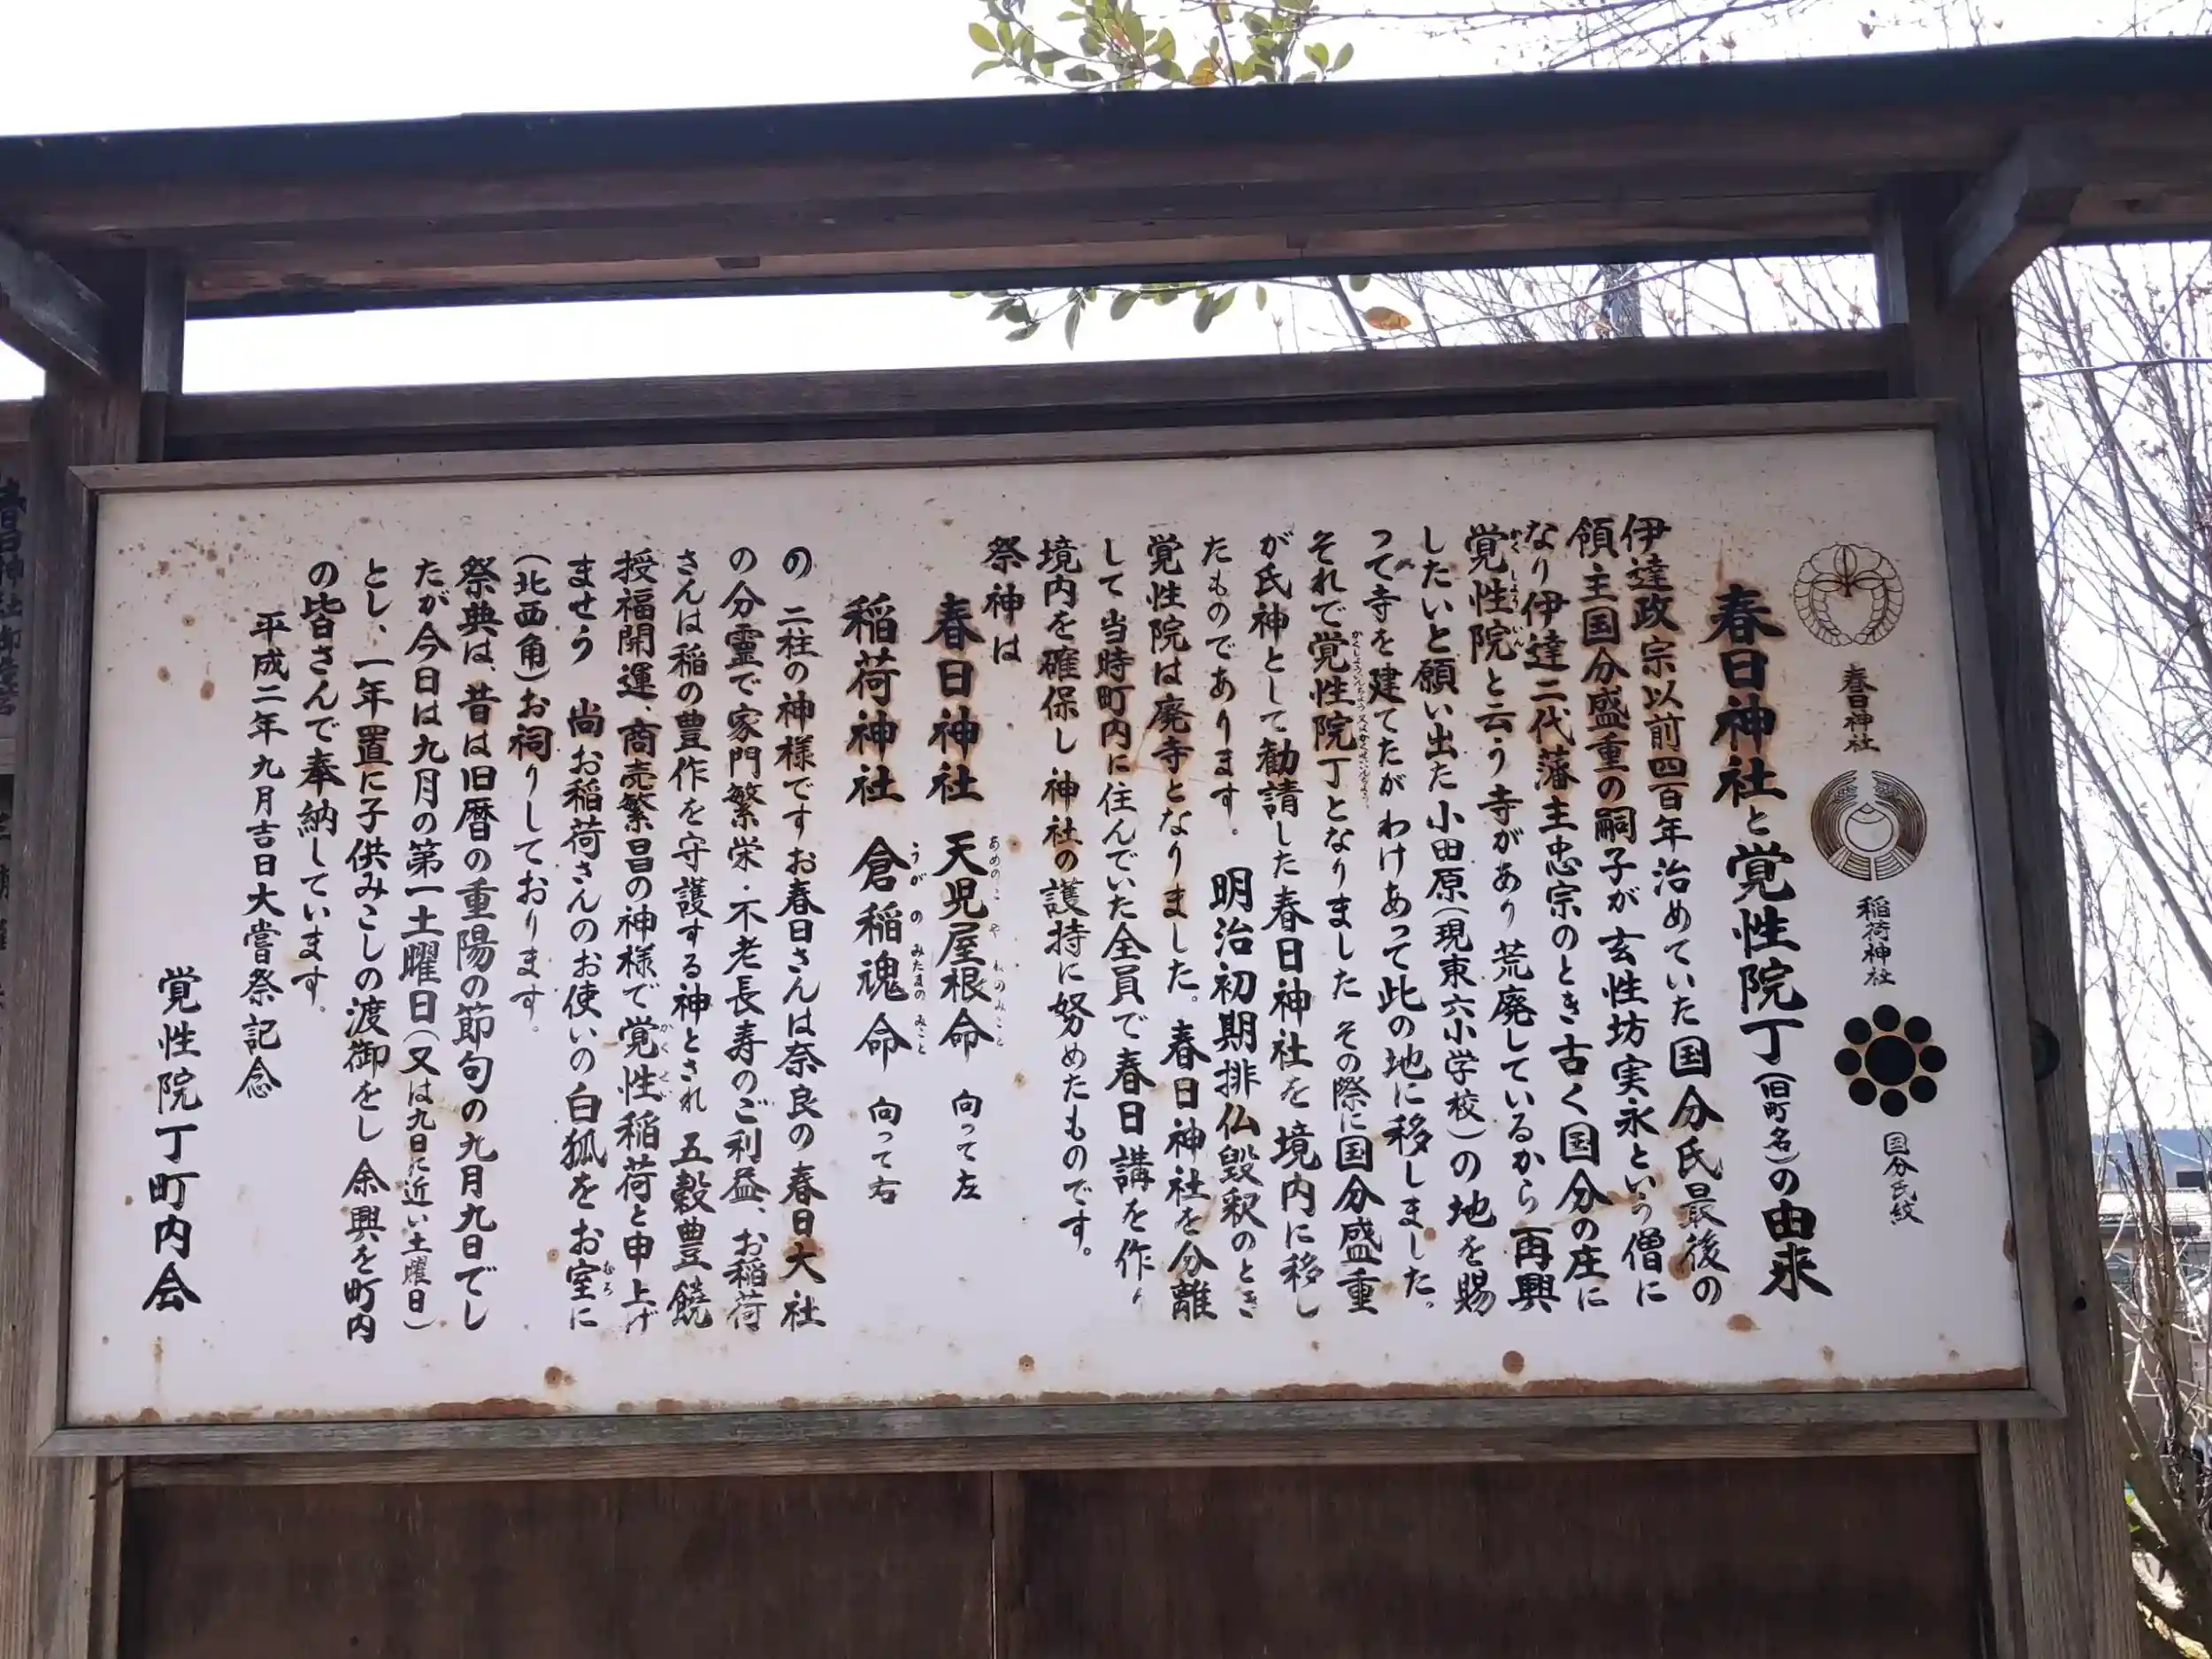 春日神社
稲荷神社
国分氏紋
春日神社と覚性院丁(旧町名)の由来
伊達政宗以前四百年治めていた国分氏最後の
領主国分盛重の嗣子が玄性坊実永という僧に
なり伊達二代藩主忠宗のとき古く国分の庄に
覚性院と云う寺があり荒廃しているから再興
かくしょういん
したいと願い出た小田原(現東六小学校)の地を賜
って寺を建てたがわけあって此の地に移しました。
それで覚性院丁となりました その際に国分盛重
が氏神として勧請した春日神社を境内に移し
たものであります。 明治初期排仏毀釈のとき
覚性院は廃寺となりました。春日神社を分離
して当時町内に住んでいた全員で春日講を作り
境内を確保し神社の護持に努めたものです。
祭神は
春日神社 天児屋根命 向って左
あめのこやねのみこと
稲荷神社 倉稲魂命 向って右
うがのみたまのみこと
の二柱の神様ですお春日さんは奈良の春日大社
の分霊で家門繁栄・不老長寿のご利益、お稲荷
さんは稲の豊作を守護する神とされ 五穀豊饒
授福開運、商売繁昌の神様で覚性稲荷と申上げ
かくせい
ませう 尚お稲荷さんのお使いの白狐をお室に
むろ
(北西角)お祠りしております。
祭典は、昔は旧暦の重陽の節句の九月九日でし
たが今日は九月の第一土曜日(又は九日に近い土曜日)
とし、一年置に子供みこしの渡御をし 余興を町内
の皆さんで奉納しています。
平成二年九月吉日大嘗祭記念
覚性院丁町内会